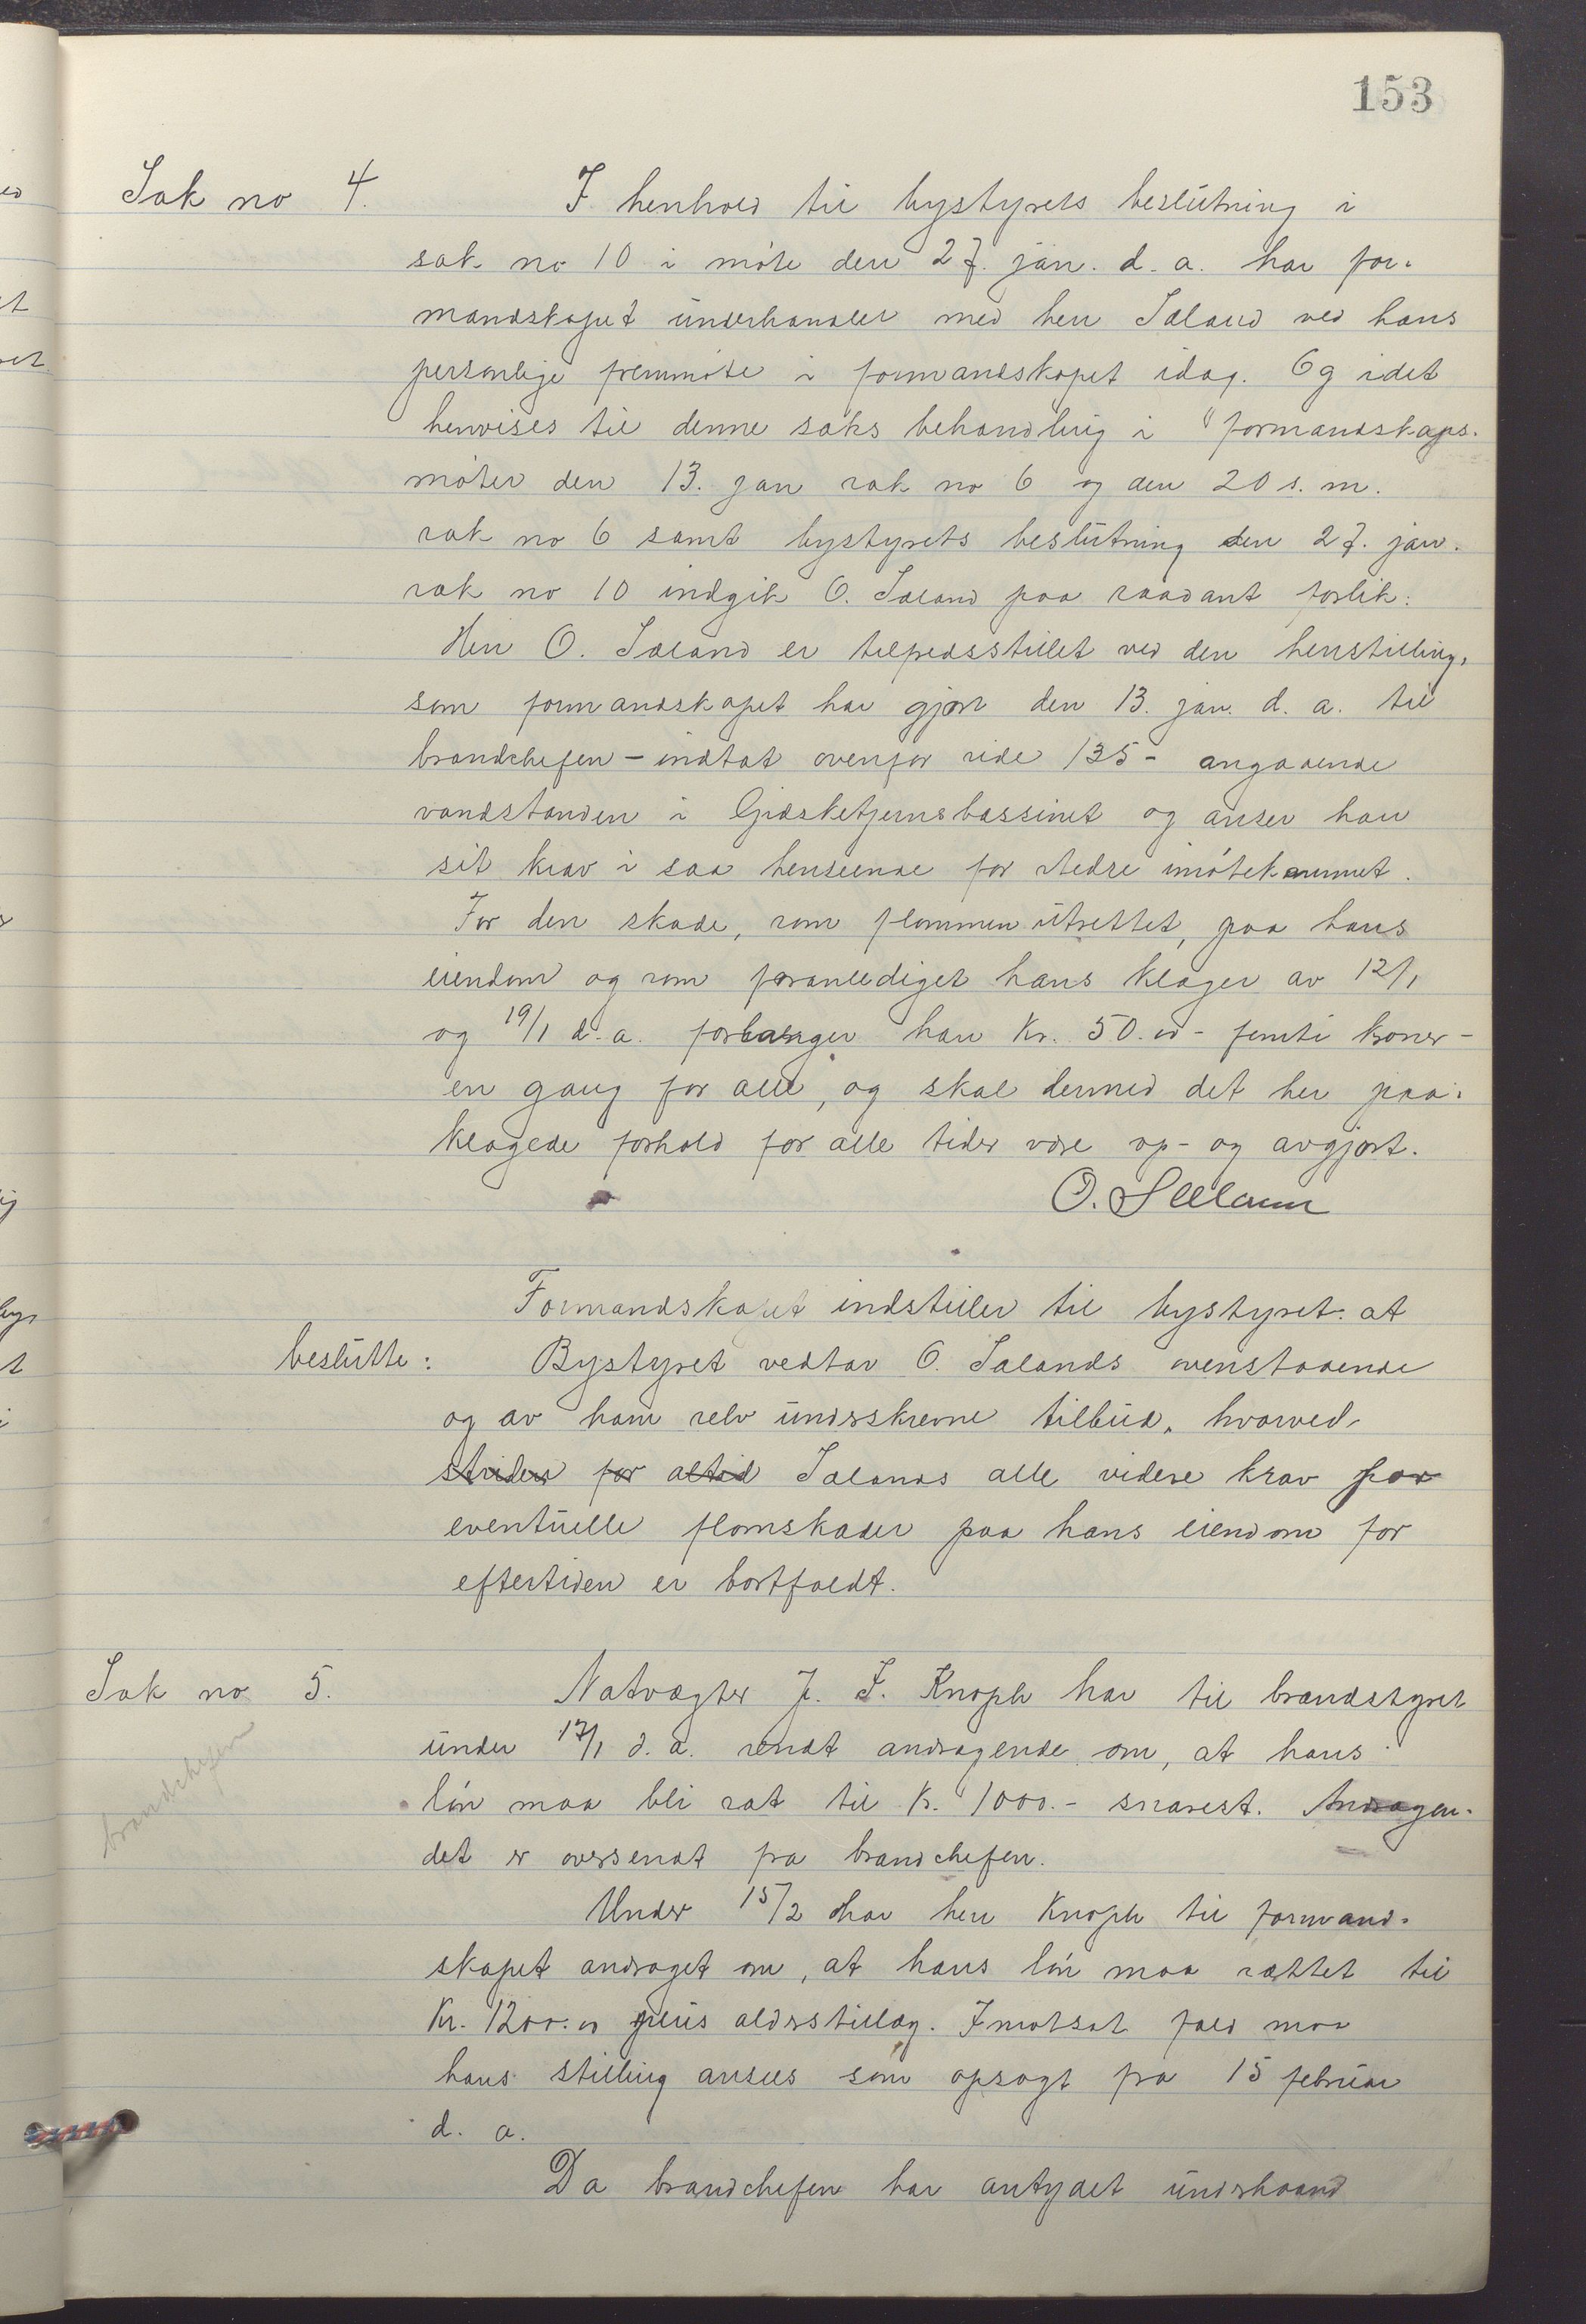 153
Sak no 4. I henhold til bystyrets beslutning i
sak no 10 i møte den 27. jan. d. a. har for-
mandskapet underhandlet med herr Sæland ved hans
personlige fremmøte i formandskapet idag. Og idet
henvises til denne saks behandling i formandskaps-
møter den 13. jan sak no 6 og den 20 s. m.
sak no 6 samt bystyrets beslutning den 27. jan.
sak no 10 indgik O. Sæland paa saadant forlik:
Herr O. Sæland er tilfredsstillet ved den henstilling,
som formandskapet har gjort den 13. jan. d. a. til
brandchefen – indtat ovenfor side 135 – angaaende
vandstanden i Gjedsketjernsbassinet og anser han
sit krav i saa henseende for stedse imøtekommet.
For den skade, som flommen utrettet, paa hans
eiendom og som foranlediget hans klager av 12/1
og 19/1 d. a. forlanger han Kr. 50.00 – femti kroner –
en gang for alle, og skal dermed det her paa-
klagede forhold for alle tider være op- og avgjort.
O. Sæland
Formandskapet indstiller til bystyret: at
beslutte: Bystyret vedtar O. Sælands ovenstaaende
og av ham selv underskrevne tilbud, hvorved
striden for altid Sælands alle videre krav for
eventuelle flomskader paa hans eiendom for
eftertiden er bortfaldt.
Sak no 5. Natvægter J. F. Knoph har til brandstyret
under 17/1 d. a. sendt andragende om, at hans
brandchefen
løn maa bli sat til Kr. 1000.- snarest. Andragen-
det er oversendt fra brandchefen.
Under 15/2 har herr Knoph til formand-
skapet andraget om, at hans løn maa sættet til
Kr. 1200.00 plus alderstillæg. I motsat fald maa
hans stilling ansees som opsagt fra 15 februar
d. a.
Da brandchefen har antydet underhaand